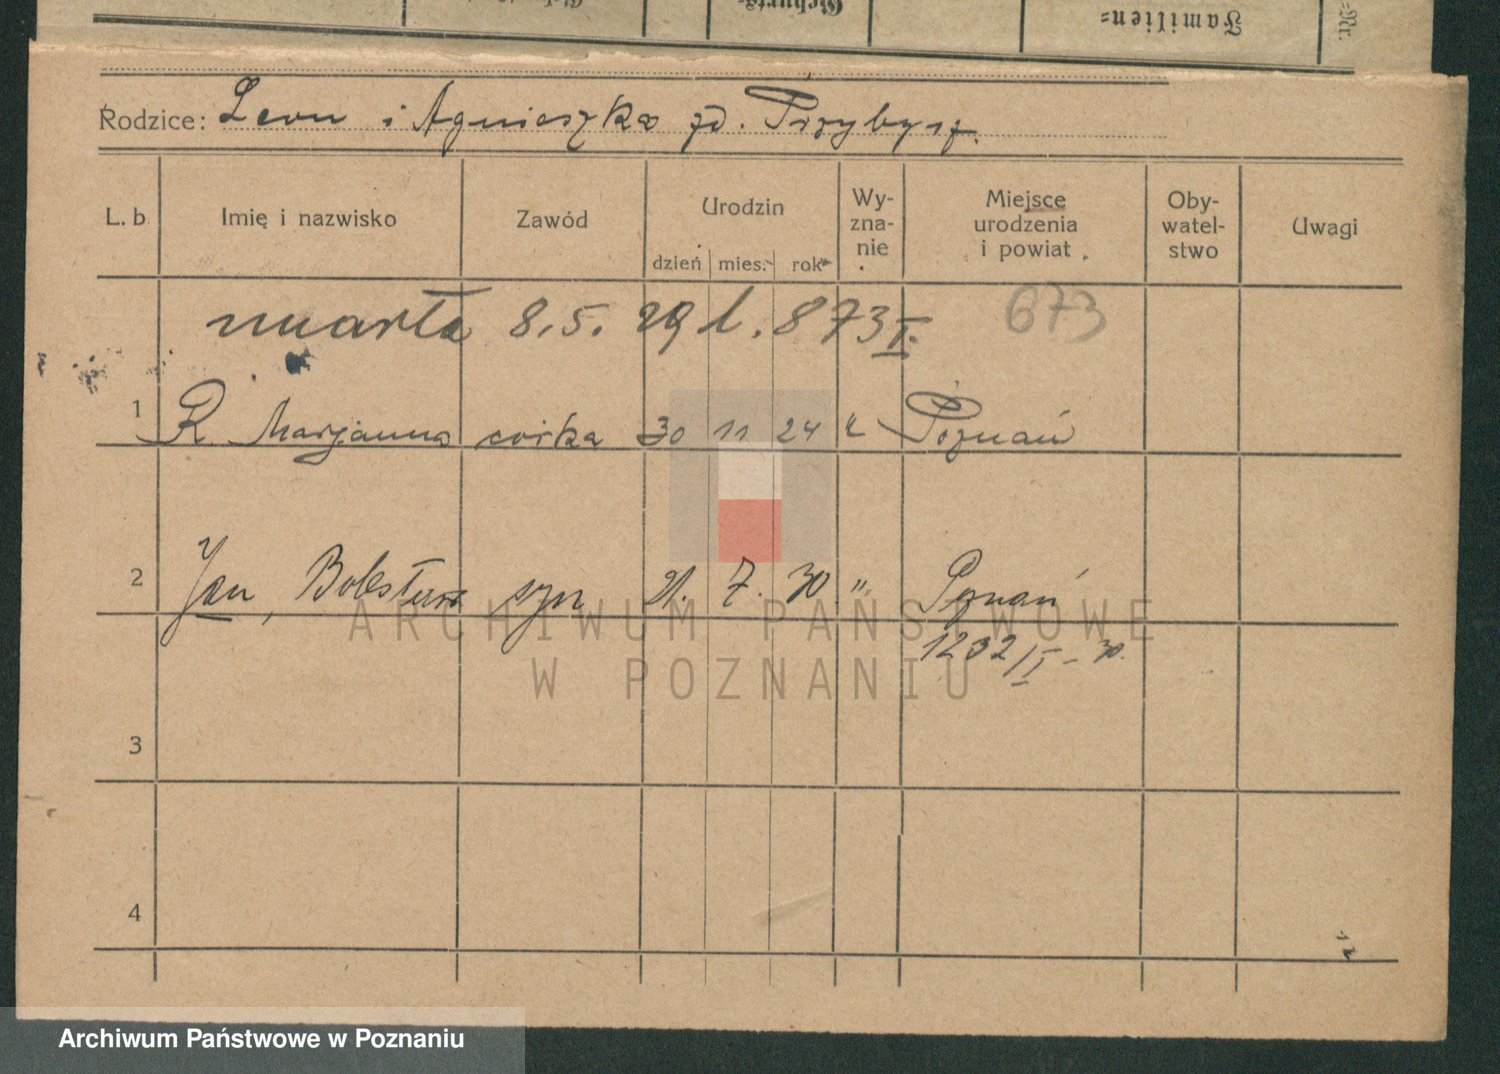 Familien=
Rodzice: Leon i Agnieszka zd. Przybysz.
L. b. Imię i nazwisko Zawód Urodzin Wy- Miejsce Oby- Uwagi
zna- urodzenia watel-
dzień mies. rok nie i powiat stwo
zmarła 8.5. 29 l. 873 II. 673
1 R Marjanna córka 30 11 24 k Poznań
2 Jan, Bolesław syn 21. 7. 30 " Poznań
1232/II - 30.
3
4
ARCHIWUM PAŃSTWOWE
W POZNANIU
Archiwum Państwowe w Poznaniu